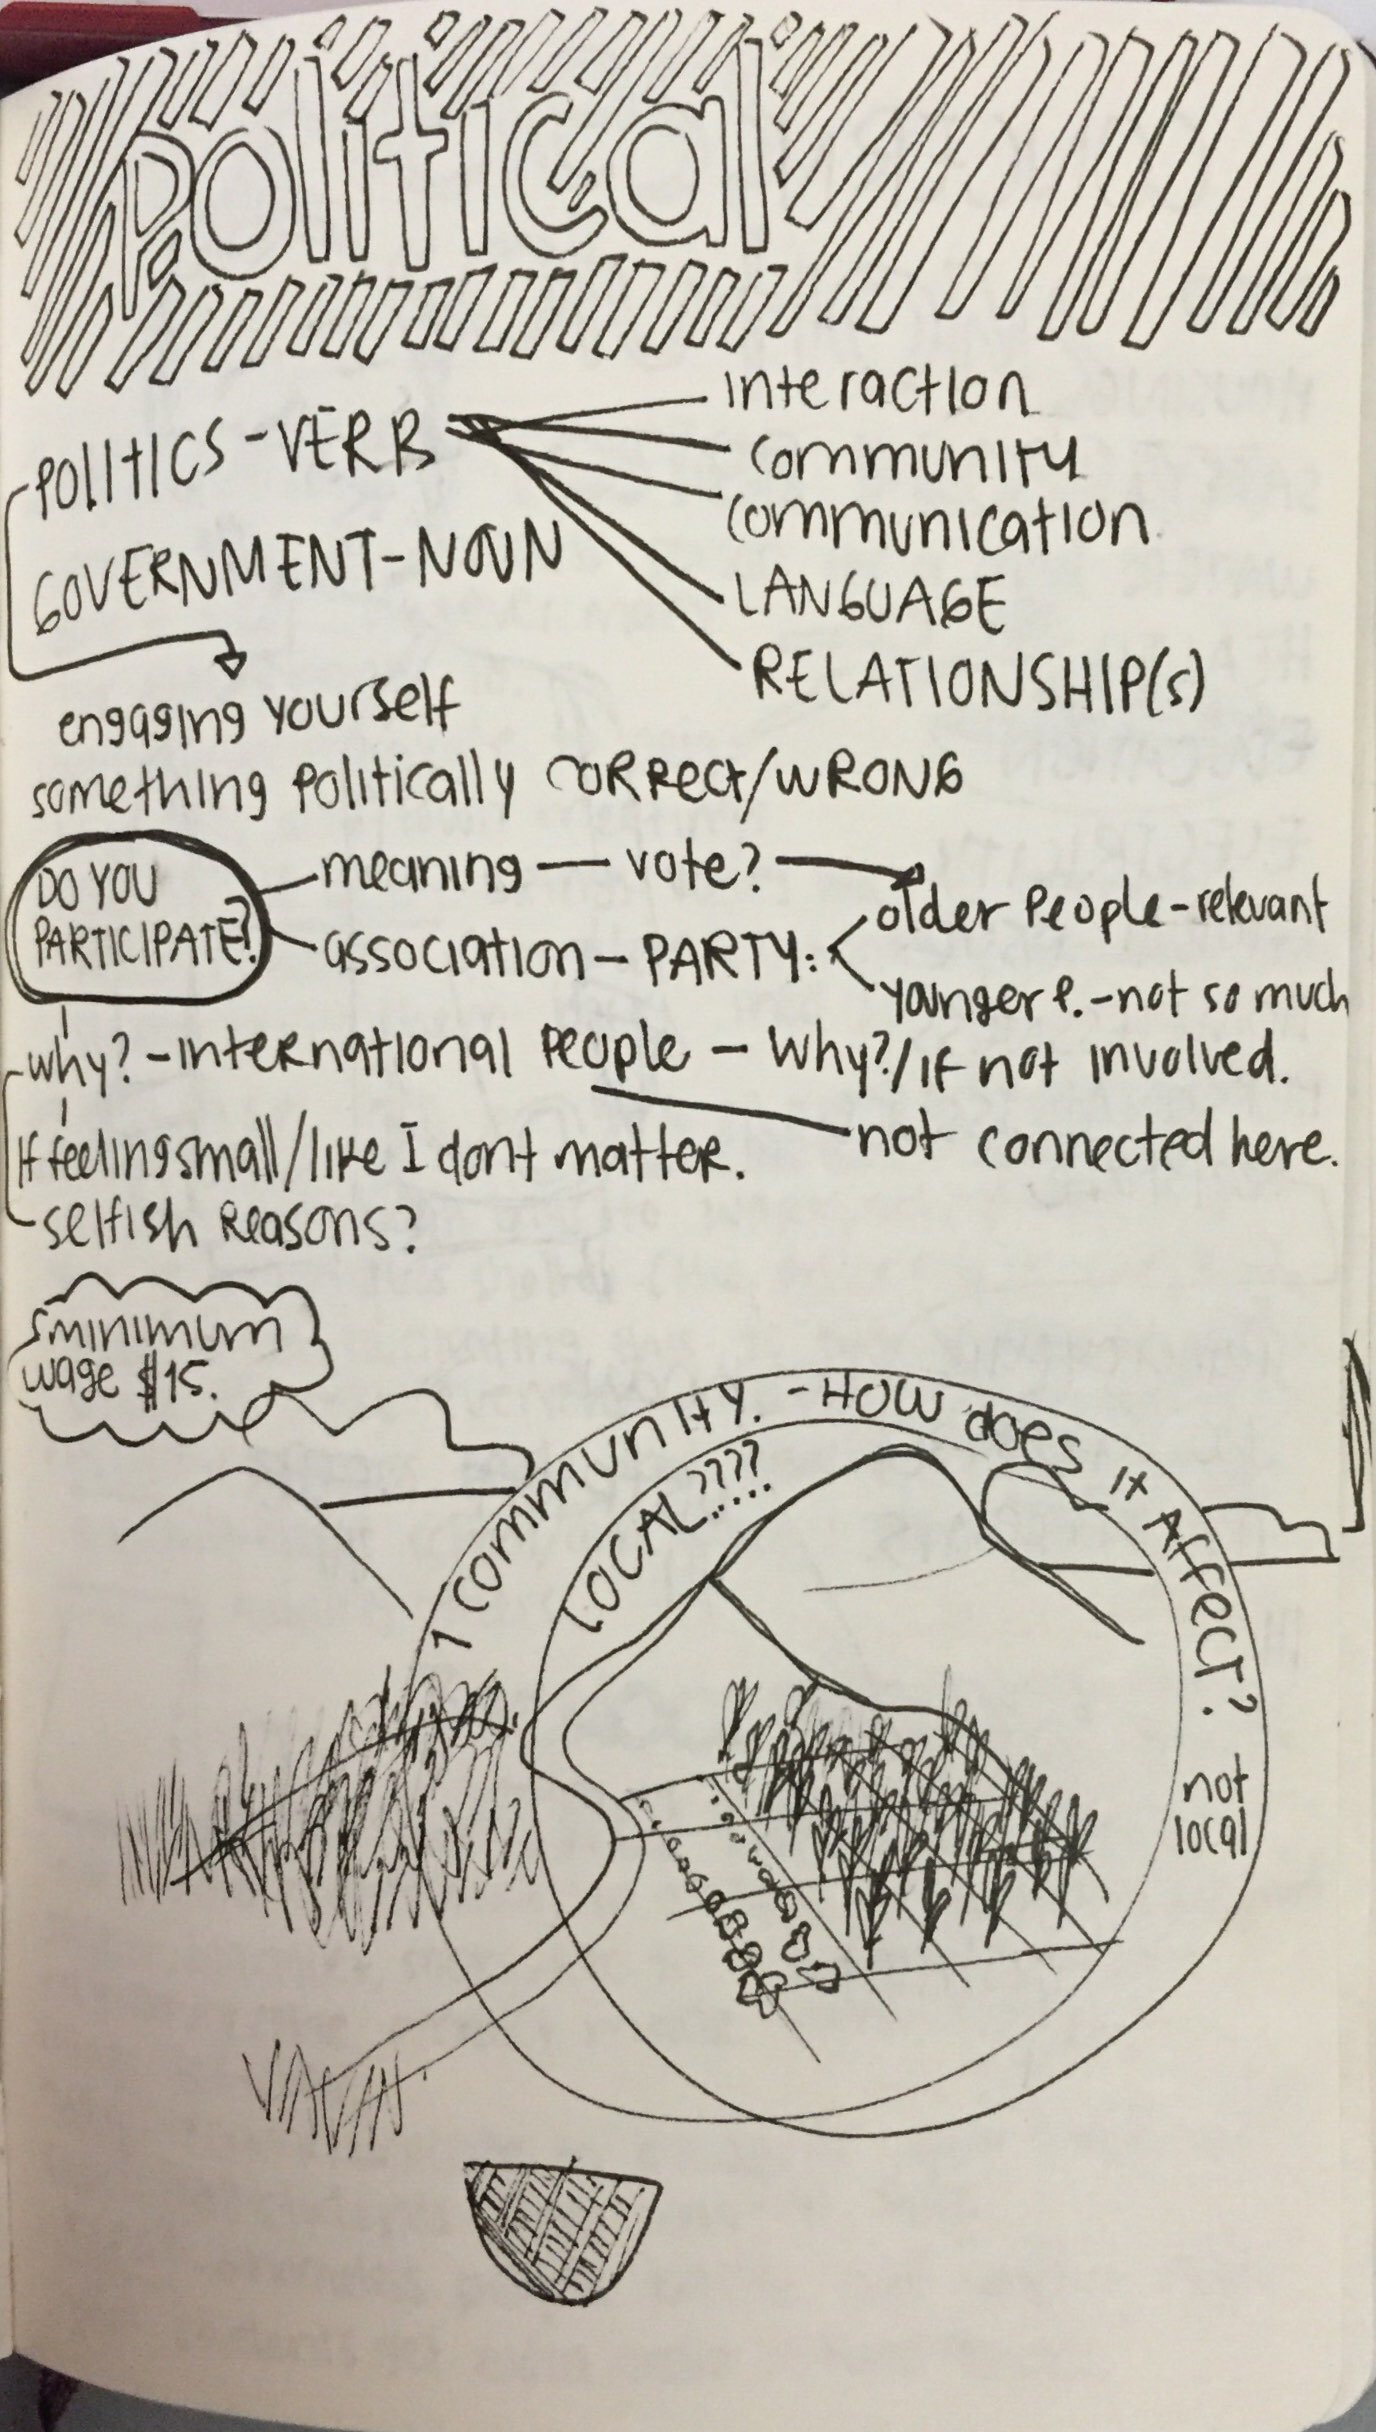 political
POLITICS - VERB
interaction
community
communication
LANGUAGE
RELATIONSHIP(S)
GOVERNMENT - NOUN
engaging yourself
something politically CORRect/WRONG
DO YOU
PARTICIPATE?
meaning — vote?
association — PARTY:
older people - relevant
younger P. - not so much
why? - international people — Why?/if not involved.
not connected here.
If feeling small/like I dont matter.
selfish Reasons?
minimum
wage $15.
1 community. - HOW does it Affect?
LOCAL????
not
local